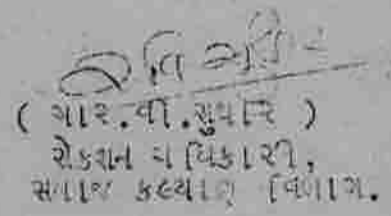 ( આર.વી.સુથાર )
સેકશન અધિકારી,
સમાજ કલ્યાણ વિભાગ.